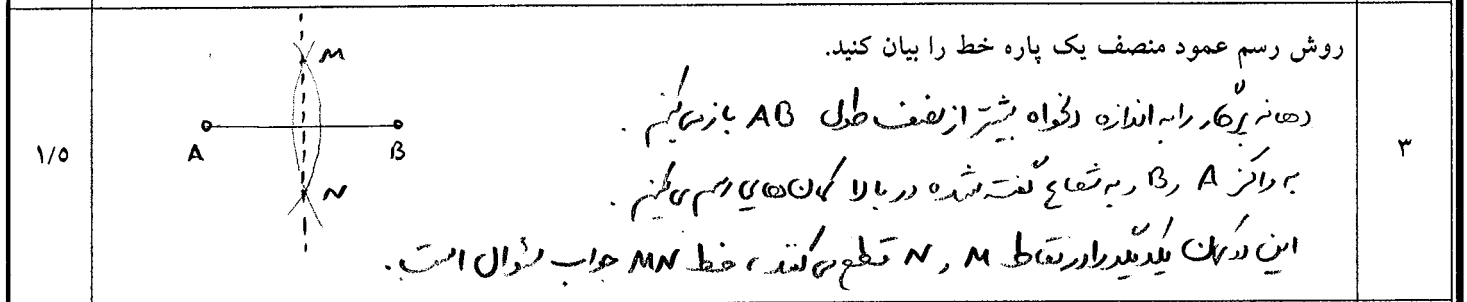 ۳
روش رسم عمود منصف یک پاره خط را بیان کنید.
دهانه پرگار را به اندازه دلخواه بیشتر از نصف طول AB باز می‌کنیم.
به مراکز A و B و به شعاع گفته شده در بالا کمان هایی رسم می‌کنیم.
این دو کمان یکدیگر را در نقاط M و N قطع می‌کنند، خط MN جواب سؤال است.
M
A
B
N
۱/۵